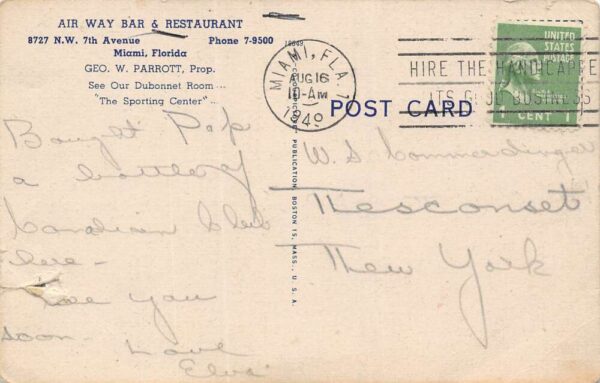 AIR WAY BAR & RESTAURANT
8727 N.W. 7th Avenue Phone 7-9500
Miami, Florida
GEO. W. PARROTT, Prop.
See Our Dubonnet Room ....
"The Sporting Center"
Bought Pop
a bottle of
Canadian Club
here -
see you
soon -
Love
PUBLICATION, BOSTON 15, MASS., U. S. A.
MIAMI, FLA.
AUG 16
10-AM
1949
HIRE THE HANDICAPPE
ITS GOOD BUSINESS
UNITED
STATES
POSTAGE
CENT 1
POST CARD
W. S. Commerdinger
Nesconset
New York